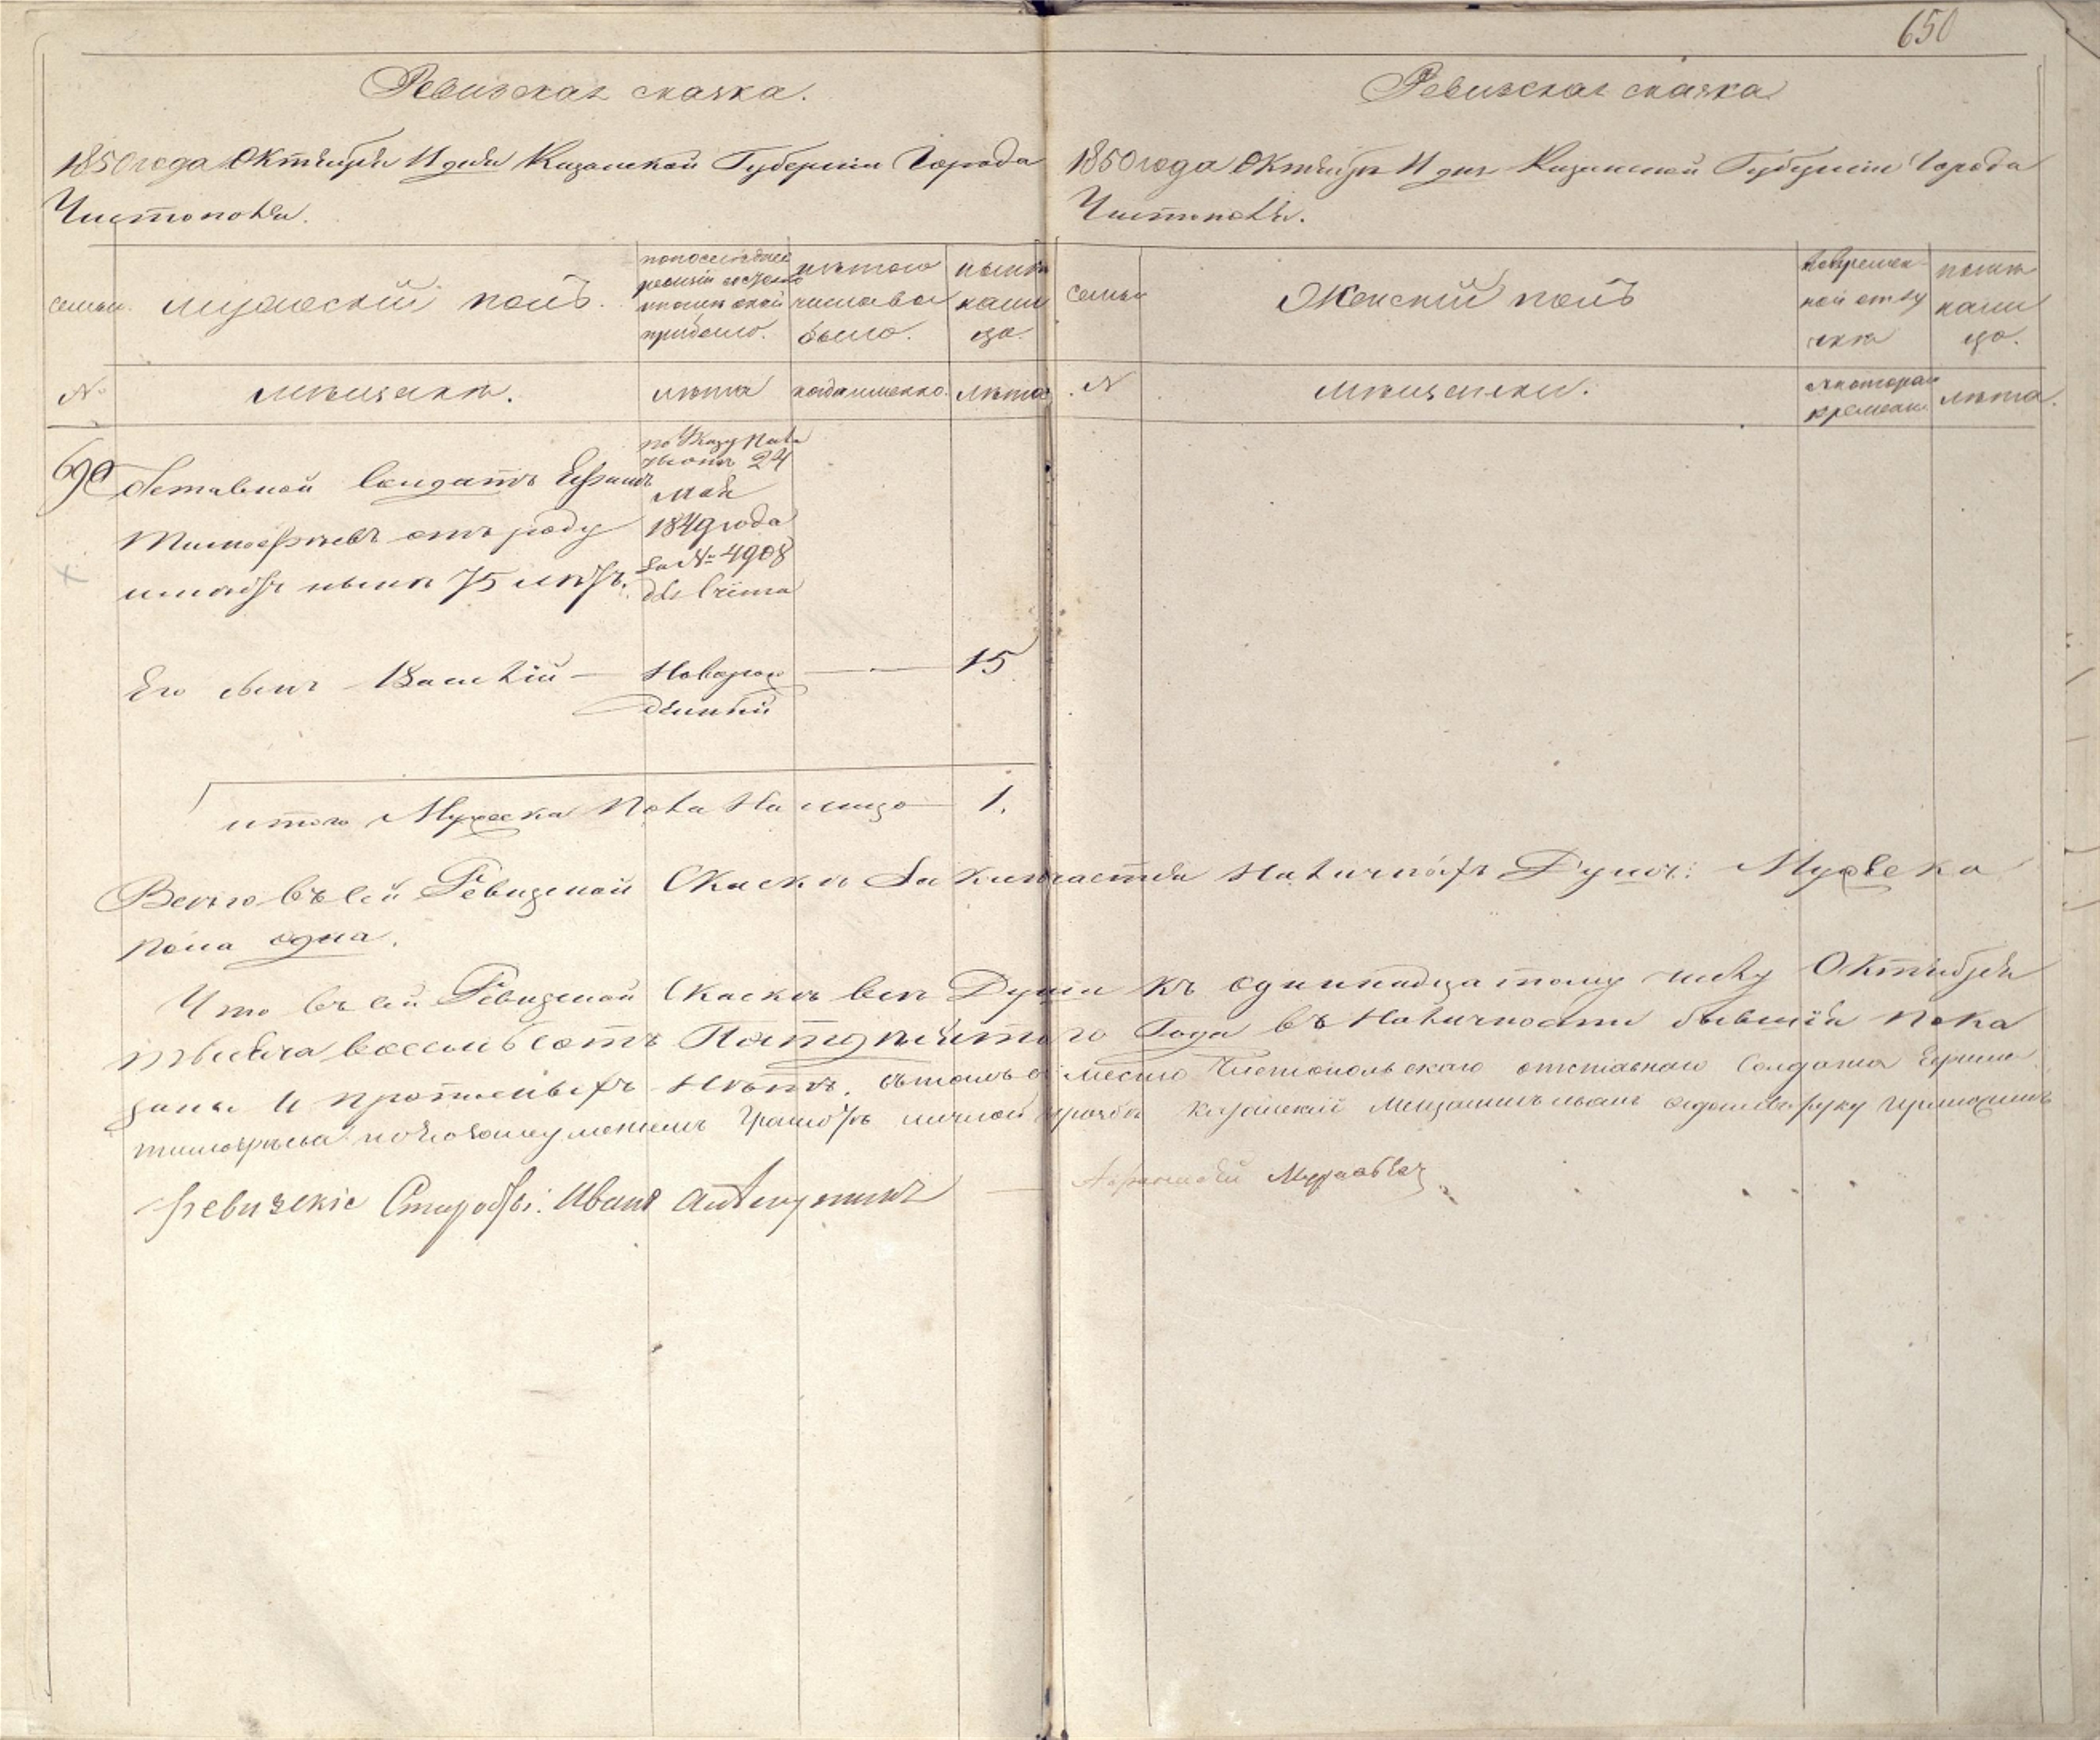 650
Ревизская сказка.
1850 года Октября 11 дня Казанской Губернии Города
Чистополя.
семьи. мужескій полъ. по последней ревизіи состояло и после оной прибыло. изъ того числа выбыло. ныне на лицо.
№ мещане. лета когда именно. лета
690 Отставной Солдатъ Ефимъ
Тимофеевъ отъ роду
имеетъ ныне 75 летъ.
по Указу Палаты 24
Мая
1849 года
за № 4908
Его сынъ Василій — Новорож — 15
денный
итого Мужеска Пола На лицо 1.
Ревизская сказка
1850 года Октября 11 дня Казанской Губерніи Города
Чистополя.
семьи Женскій полъ во временной отлучке ныне на лицо.
№ мещанки. съ котораго времени лета.
Всего въ сей Ревизской Сказке Заключается Наличныхъ Душъ: Мужеска
пола одна.
Что въ сей Ревизской Сказке все Души къ одиннадцатому числу Октября
тысяча восемь сотъ Пятдесятого Года въ Наличности бывшія Пока
заны и прописныхъ Нетъ. въ томъ в место Чистопольскаго отставнаго Солдата Ефима
Тимофеева грамоте личной прозбе Казанскій Мещанинъ Иванъ руку приложилъ
Ревизскіе Старосты: Иванъ